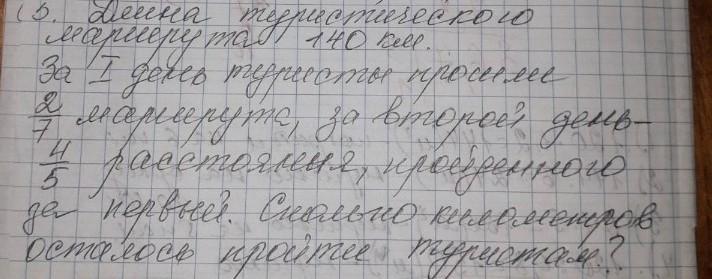 5. Длина туристического
маршрута 140 км.
За I день туристы прошли
2/7 маршрута, за второй день-
4/5 расстояния, пройденного
за первый. Сколько километров
осталось пройти туристам?